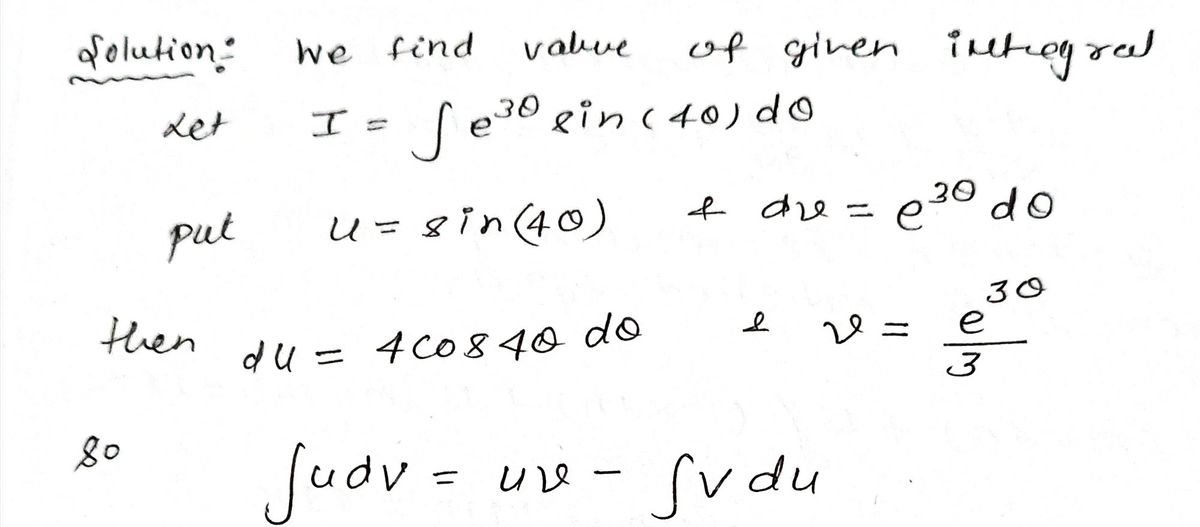 Solution:- We find value of given integral
Let I = ∫ e^{3θ} sin(4θ) dθ
put u = sin(4θ) & dv = e^{3θ} dθ
then du = 4 cos 4θ dθ & v = e^{3θ}/3
so ∫u dv = uv - ∫v du